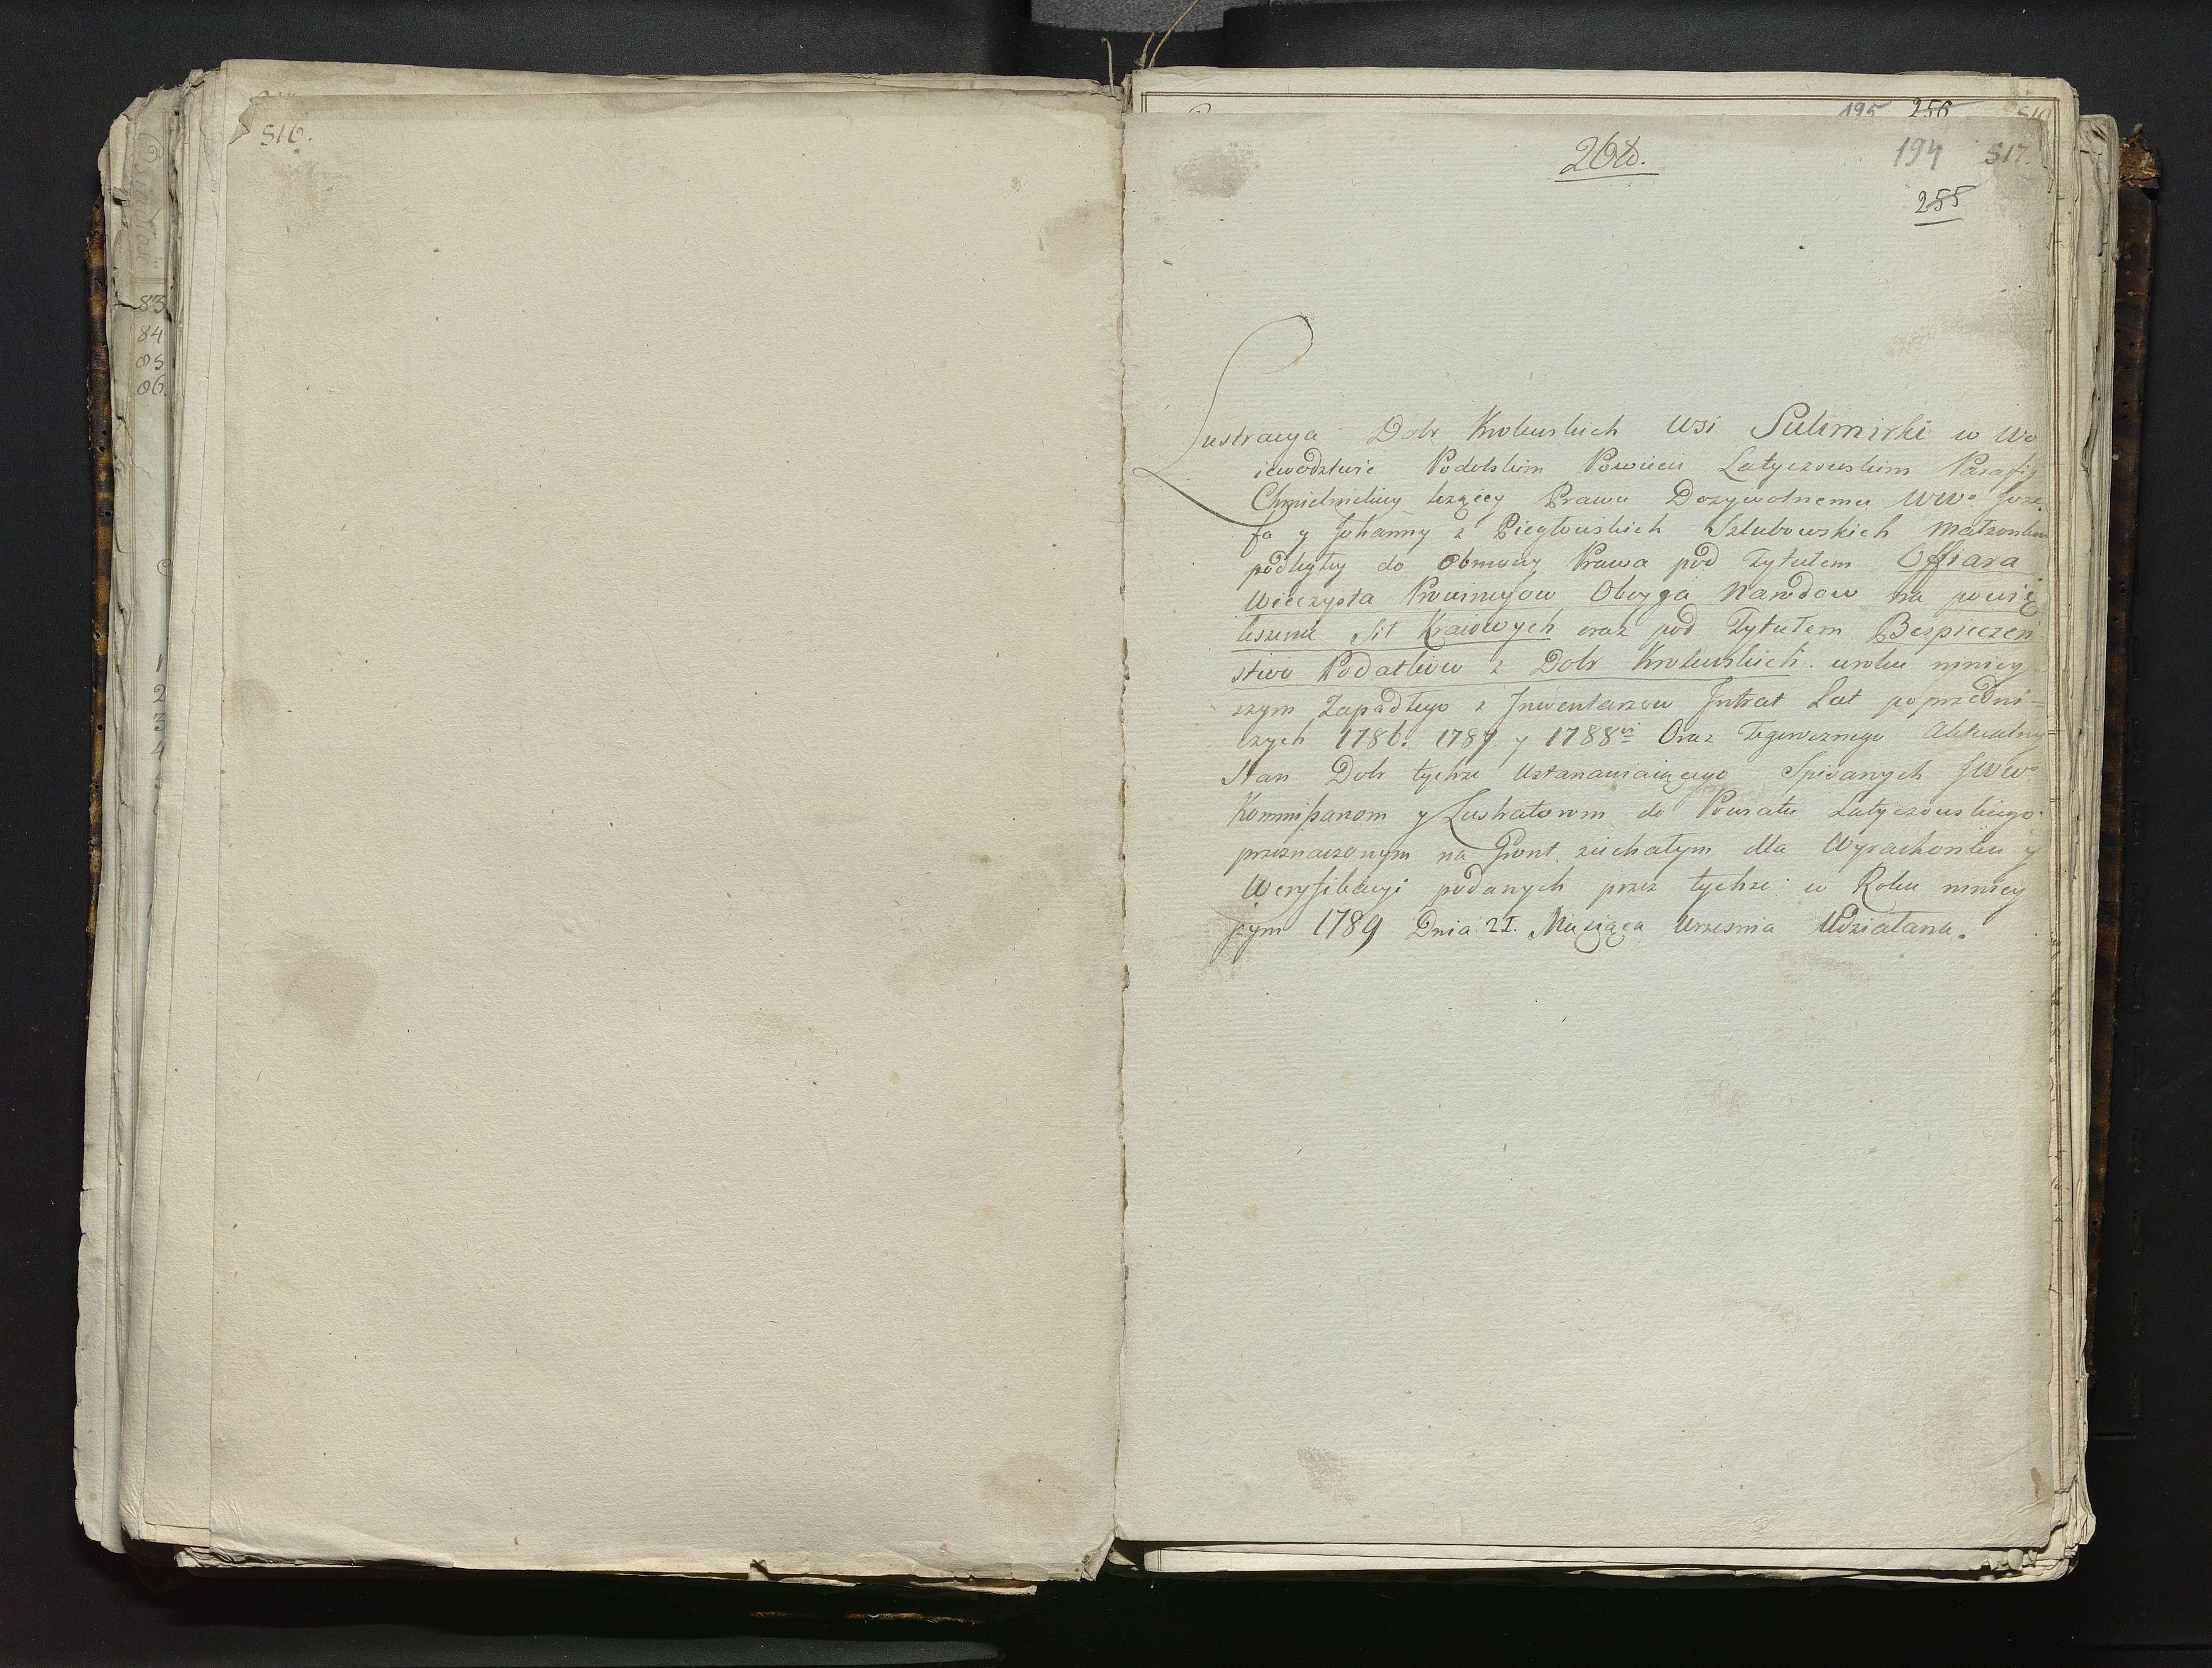 516.
83
84
85
86.
195 256
268.
194 517.
255
Lustracya Dobr Krolewskich Wsi Sulimirki w Wo
iewodztwie Podolskim Powiecie Latyczowskim Parafij
Chmielnickiey leżącey Prawu Dożywotnemu WWch Joze
fa y Johanny z Piegłowskich Szlubowskich Małżonkow
podległey do Obmowy Prawa pod Tytułem Offiara
Wieczysta Prowincyow Oboyga Narodow na powię
kszenie Sił Kraiowych oraz pod Tytułem Bespieczeń
stwo Podatkow z Dobr Krolewskich w roku niniey
szym Zapadłego z Jnwentarzow Jntrat Lat poprzedni=
czych 1786. 1787 y 1788 Oraz Tegorocznego Aktualny=
Stan Dobr tychże Ustanawiaiącego Spisanych JWWch
Kommissarzom y Lustratorom do Powiatu Latyczowskiego
przeznaczonym na Grunt ziechałym dla Wyrachonku y
Weryfikacyi podanych przez tychże w Roku niniey
szym 1789 Dnia 21. Miesiąca Września Udziałana.